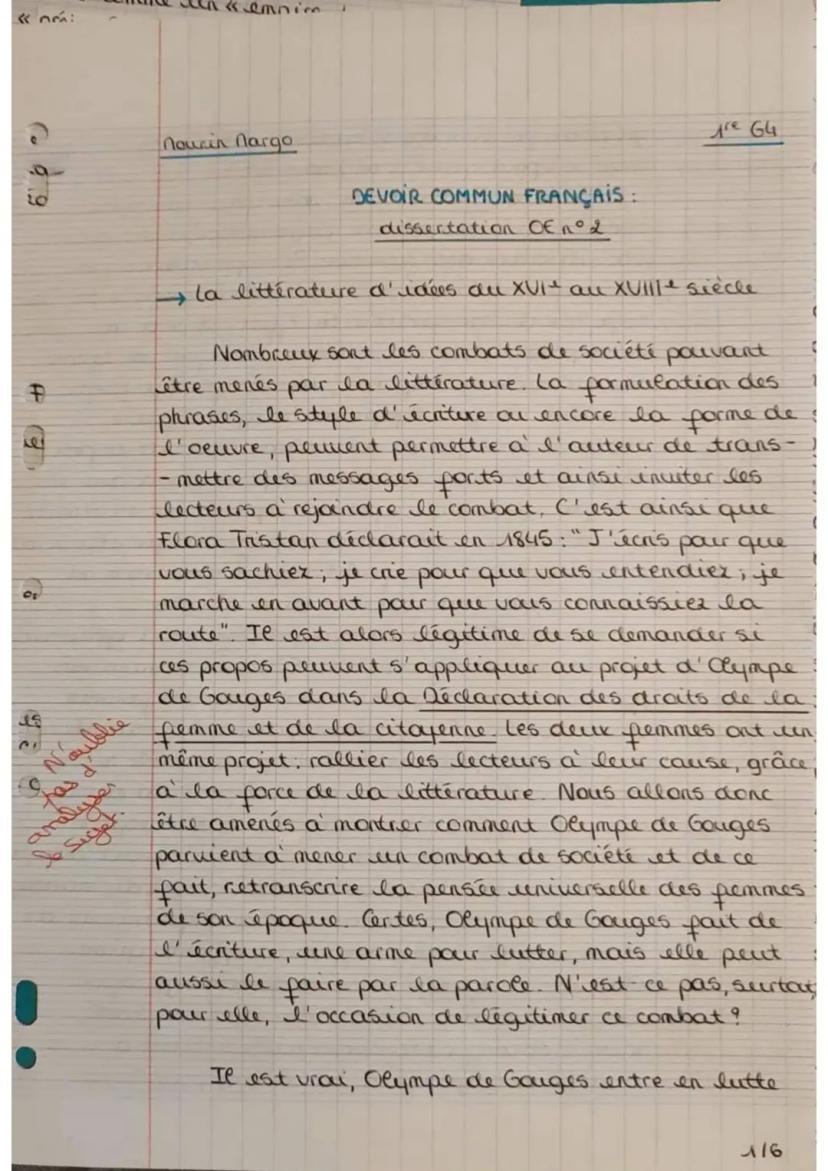 « emnim
« nrá:
Nourin Nargo
1re G4
DEVOIR COMMUN FRANÇAIS :
dissertation OE n° 2
→ La littérature d'idées du XVIe au XVIIIe siècle
Nombreux sont les combats de société pouvant
être menés par la littérature. La formulation des
phrases, le style d'écriture ou encore la forme de
l'oeuvre, peuvent permettre à l'auteur de trans-
-mettre des messages forts et ainsi inviter les
lecteurs à rejoindre le combat. C'est ainsi que
Flora Tristan déclarait en 1845 : "J'écris pour que
vous sachiez ; je crie pour que vous entendiez ; je
marche en avant pour que vous connaissiez la
route". Il est alors légitime de se demander si
ces propos peuvent s'appliquer au projet d'Olympe
de Gouges dans la Déclaration des droits de la
femme et de la citoyenne. Les deux femmes ont un
même projet : rallier les lecteurs à leur cause, grâce
à la force de la littérature. Nous allons donc
être amenés à montrer comment Olympe de Gouges
parvient à mener un combat de société et de ce
fait, retranscrire la pensée universelle des femmes
de son époque. Certes, Olympe de Gouges fait de
l'écriture, une arme pour lutter, mais elle peut
aussi le faire par la parole. N'est-ce pas, surtout
pour elle, l'occasion de légitimer ce combat ?
N'oublie
pas d'
analyser
le sujet.
Il est vrai, Olympe de Gouges entre en lutte
1/6